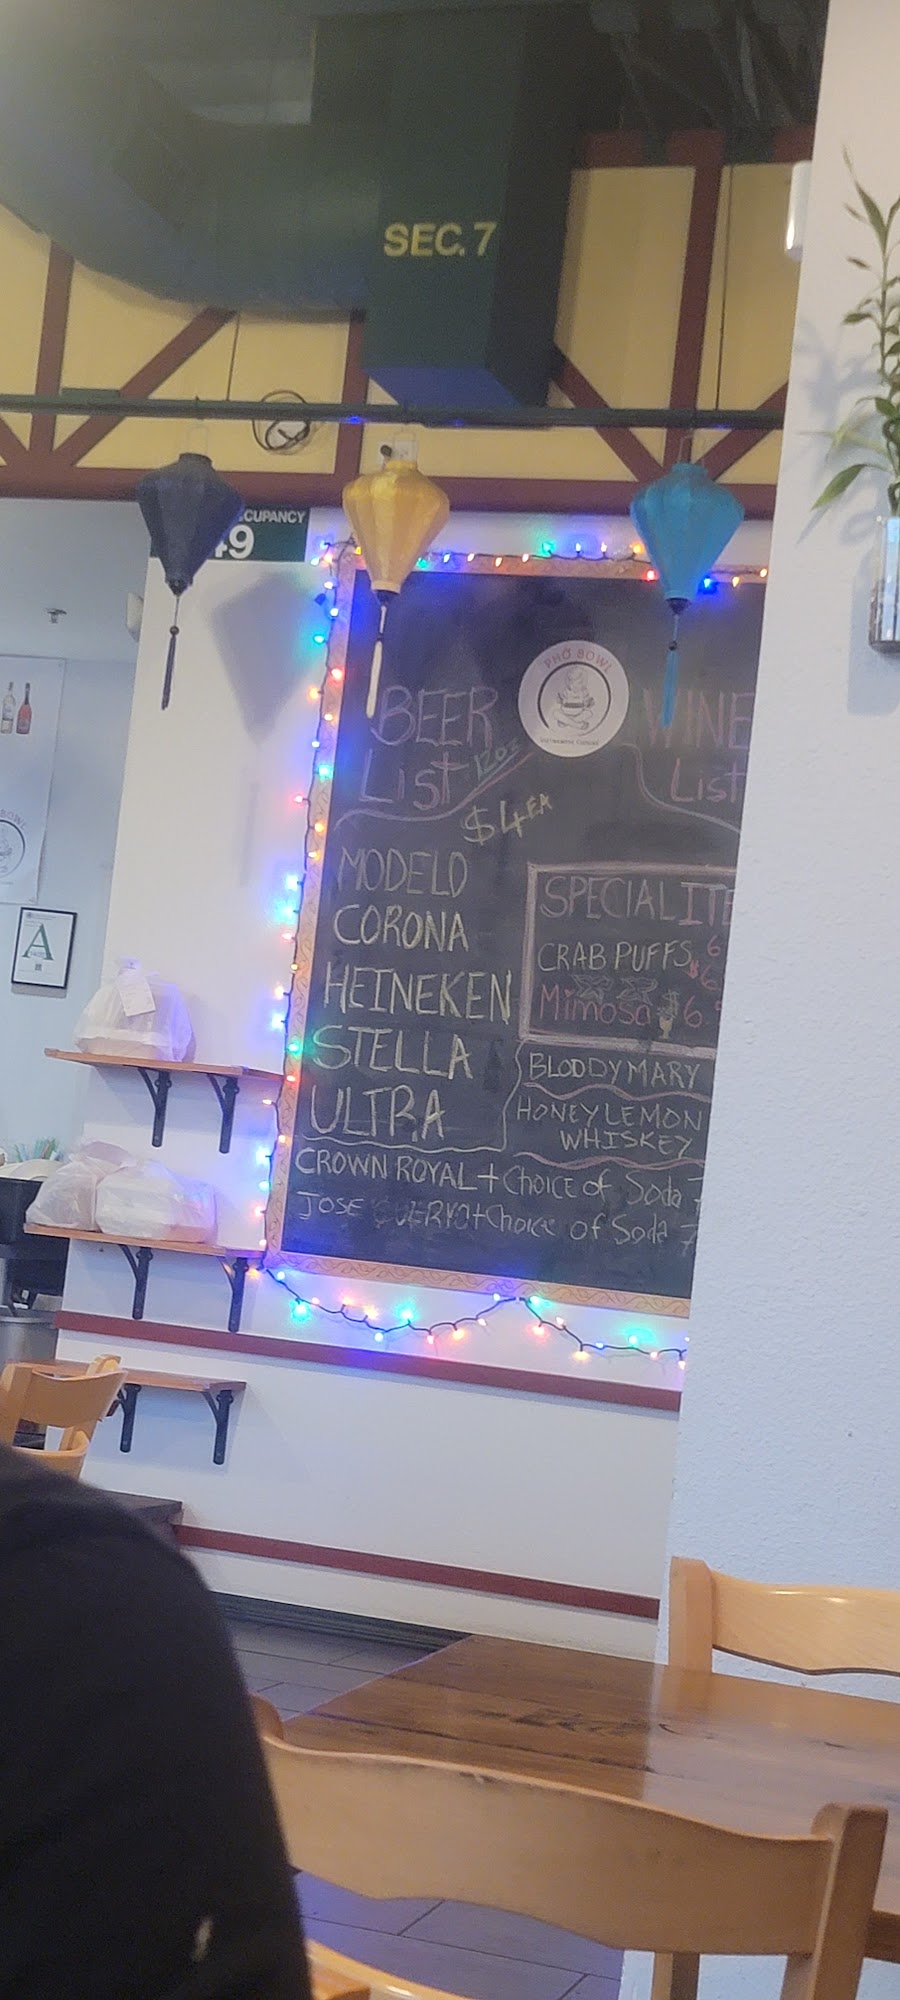 SEC. 7
CUPANCY
49
PHỞ BOWL
BEER
List 12oz
$4 EA
MODELO
CORONA
HEINEKEN
STELLA
ULTRA
WINE
List
SPECIALITE
CRAB PUFFS
Mimosa $6
BLODDYMARY
HONEY LEMON
WHISKEY
CROWN ROYAL + Choice of Soda
JOSE CUERVO + Choice of Soda 7
A
BOWL